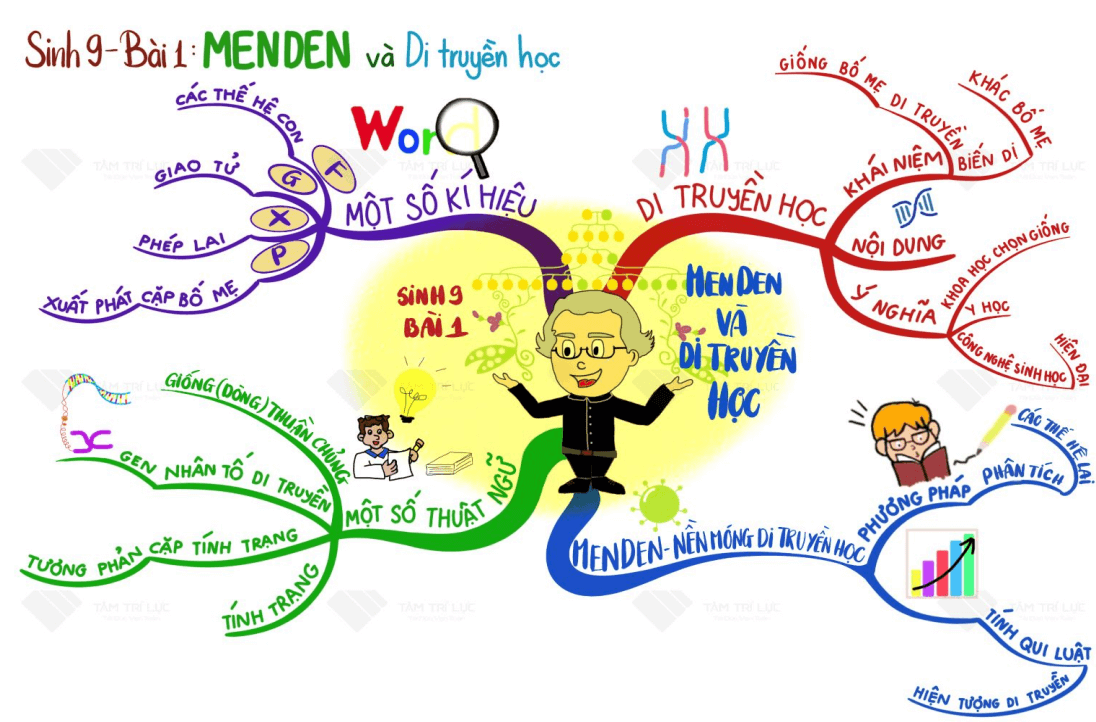 Sinh 9 - Bài 1: MENDEN và Di truyền học
Word
SINH 9
BÀI 1
MENDEN
VÀ
DI TRUYỀN
HỌC
DI TRUYỀN HỌC
KHÁI NIỆM
GIỐNG BỐ MẸ DI TRUYỀN
BIẾN DỊ
KHÁC BỐ MẸ
NỘI DUNG
Ý NGHĨA
KHOA HỌC CHỌN GIỐNG
Y HỌC
CÔNG NGHỆ SINH HỌC
HIỆN ĐẠI
MENDEN - NỀN MÓNG DI TRUYỀN HỌC
PHƯƠNG PHÁP
PHÂN TÍCH
CÁC THẾ HỆ LAI
TÍNH QUI LUẬT
HIỆN TƯỢNG DI TRUYỀN
MỘT SỐ THUẬT NGỮ
GIỐNG (DÒNG) THUẦN CHỦNG
GEN NHÂN TỐ DI TRUYỀN
TƯƠNG PHẢN CẶP TÍNH TRẠNG
TÍNH TRẠNG
MỘT SỐ KÍ HIỆU
F
CÁC THẾ HỆ CON
G
GIAO TỬ
X
PHÉP LAI
P
XUẤT PHÁT CẶP BỐ MẸ
TÂM TRÍ LỰC